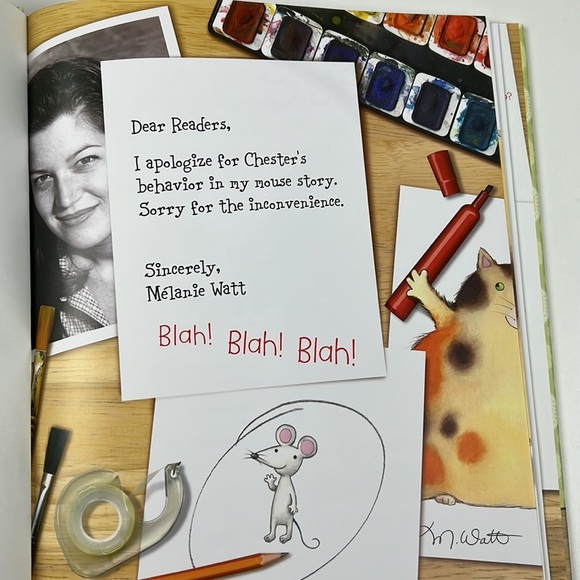 Dear Readers,
I apologize for Chester's
behavior in my mouse story.
Sorry for the inconvenience.
Sincerely,
Mélanie Watt
Blah! Blah! Blah!
M. Watt